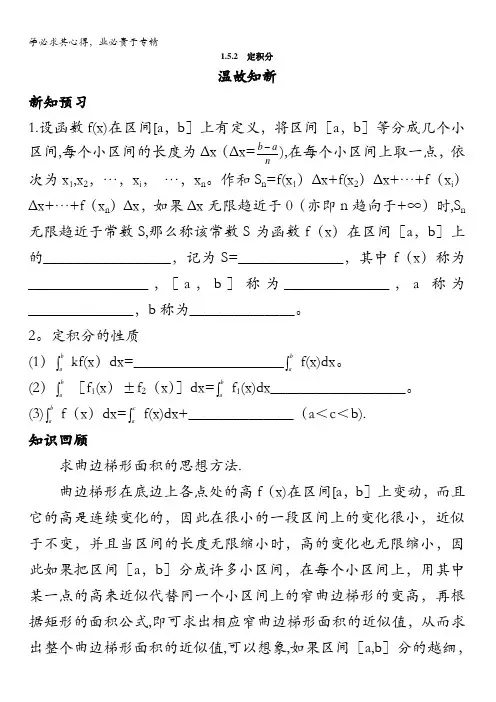 学必求其心得，业必贵于专精
1.5.2 定积分
温故知新
新知预习
1.设函数f(x)在区间[a，b］上有定义，将区间［a，b］等分成几个小
区间,每个小区间的长度为Δx（Δx=\frac{b-a}{n}),在每个小区间上取一点，依
次为x₁,x₂，…，xᵢ， …，xₙ。作和Sₙ=f(x₁）Δx+f(x₂）Δx+…+f（xᵢ）
Δx+…+f（xₙ）Δx，如果Δx无限趋近于0（亦即n趋向于+∞）时,Sₙ
无限趋近于常数S,那么称该常数S为函数f（x）在区间［a，b］上
的_________________，记为S=______________，其中f（x）称为
________________，［a，b］称为______________，a称为
______________，b称为______________。
2。定积分的性质
(1）∫ₐᵇ kf(x）dx=____________________∫ₐᵇ f(x)dx。
(2）∫ₐᵇ ［f₁(x）±f₂（x)］dx=∫ₐᵇ f₁(x)dx__________________。
(3)∫ₐᵇ f（x）dx=∫ₐᶜ f(x)dx+______________（a＜c＜b).
知识回顾
求曲边梯形面积的思想方法.
曲边梯形在底边上各点处的高f（x)在区间[a，b］上变动，而且
它的高是连续变化的，因此在很小的一段区间上的变化很小，近似
于不变，并且当区间的长度无限缩小时，高的变化也无限缩小，因
此如果把区间［a，b］分成许多小区间，在每个小区间上，用其中
某一点的高来近似代替同一个小区间上的窄曲边梯形的变高，再根
据矩形的面积公式,即可求出相应窄曲边梯形面积的近似值，从而求
出整个曲边梯形面积的近似值,可以想象,如果区间［a,b］分的越细，